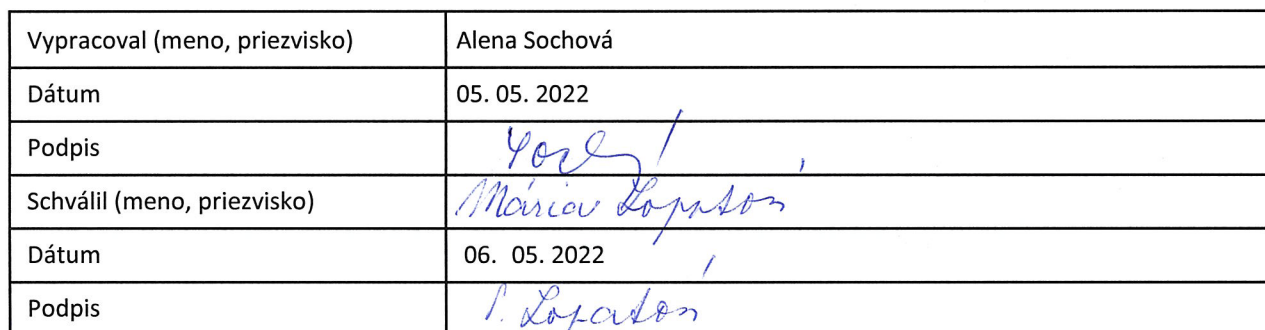 Vypracoval (meno, priezvisko) Alena Sochová
Dátum 05. 05. 2022
Podpis
Schválil (meno, priezvisko) Mária
Dátum 06. 05. 2022
Podpis